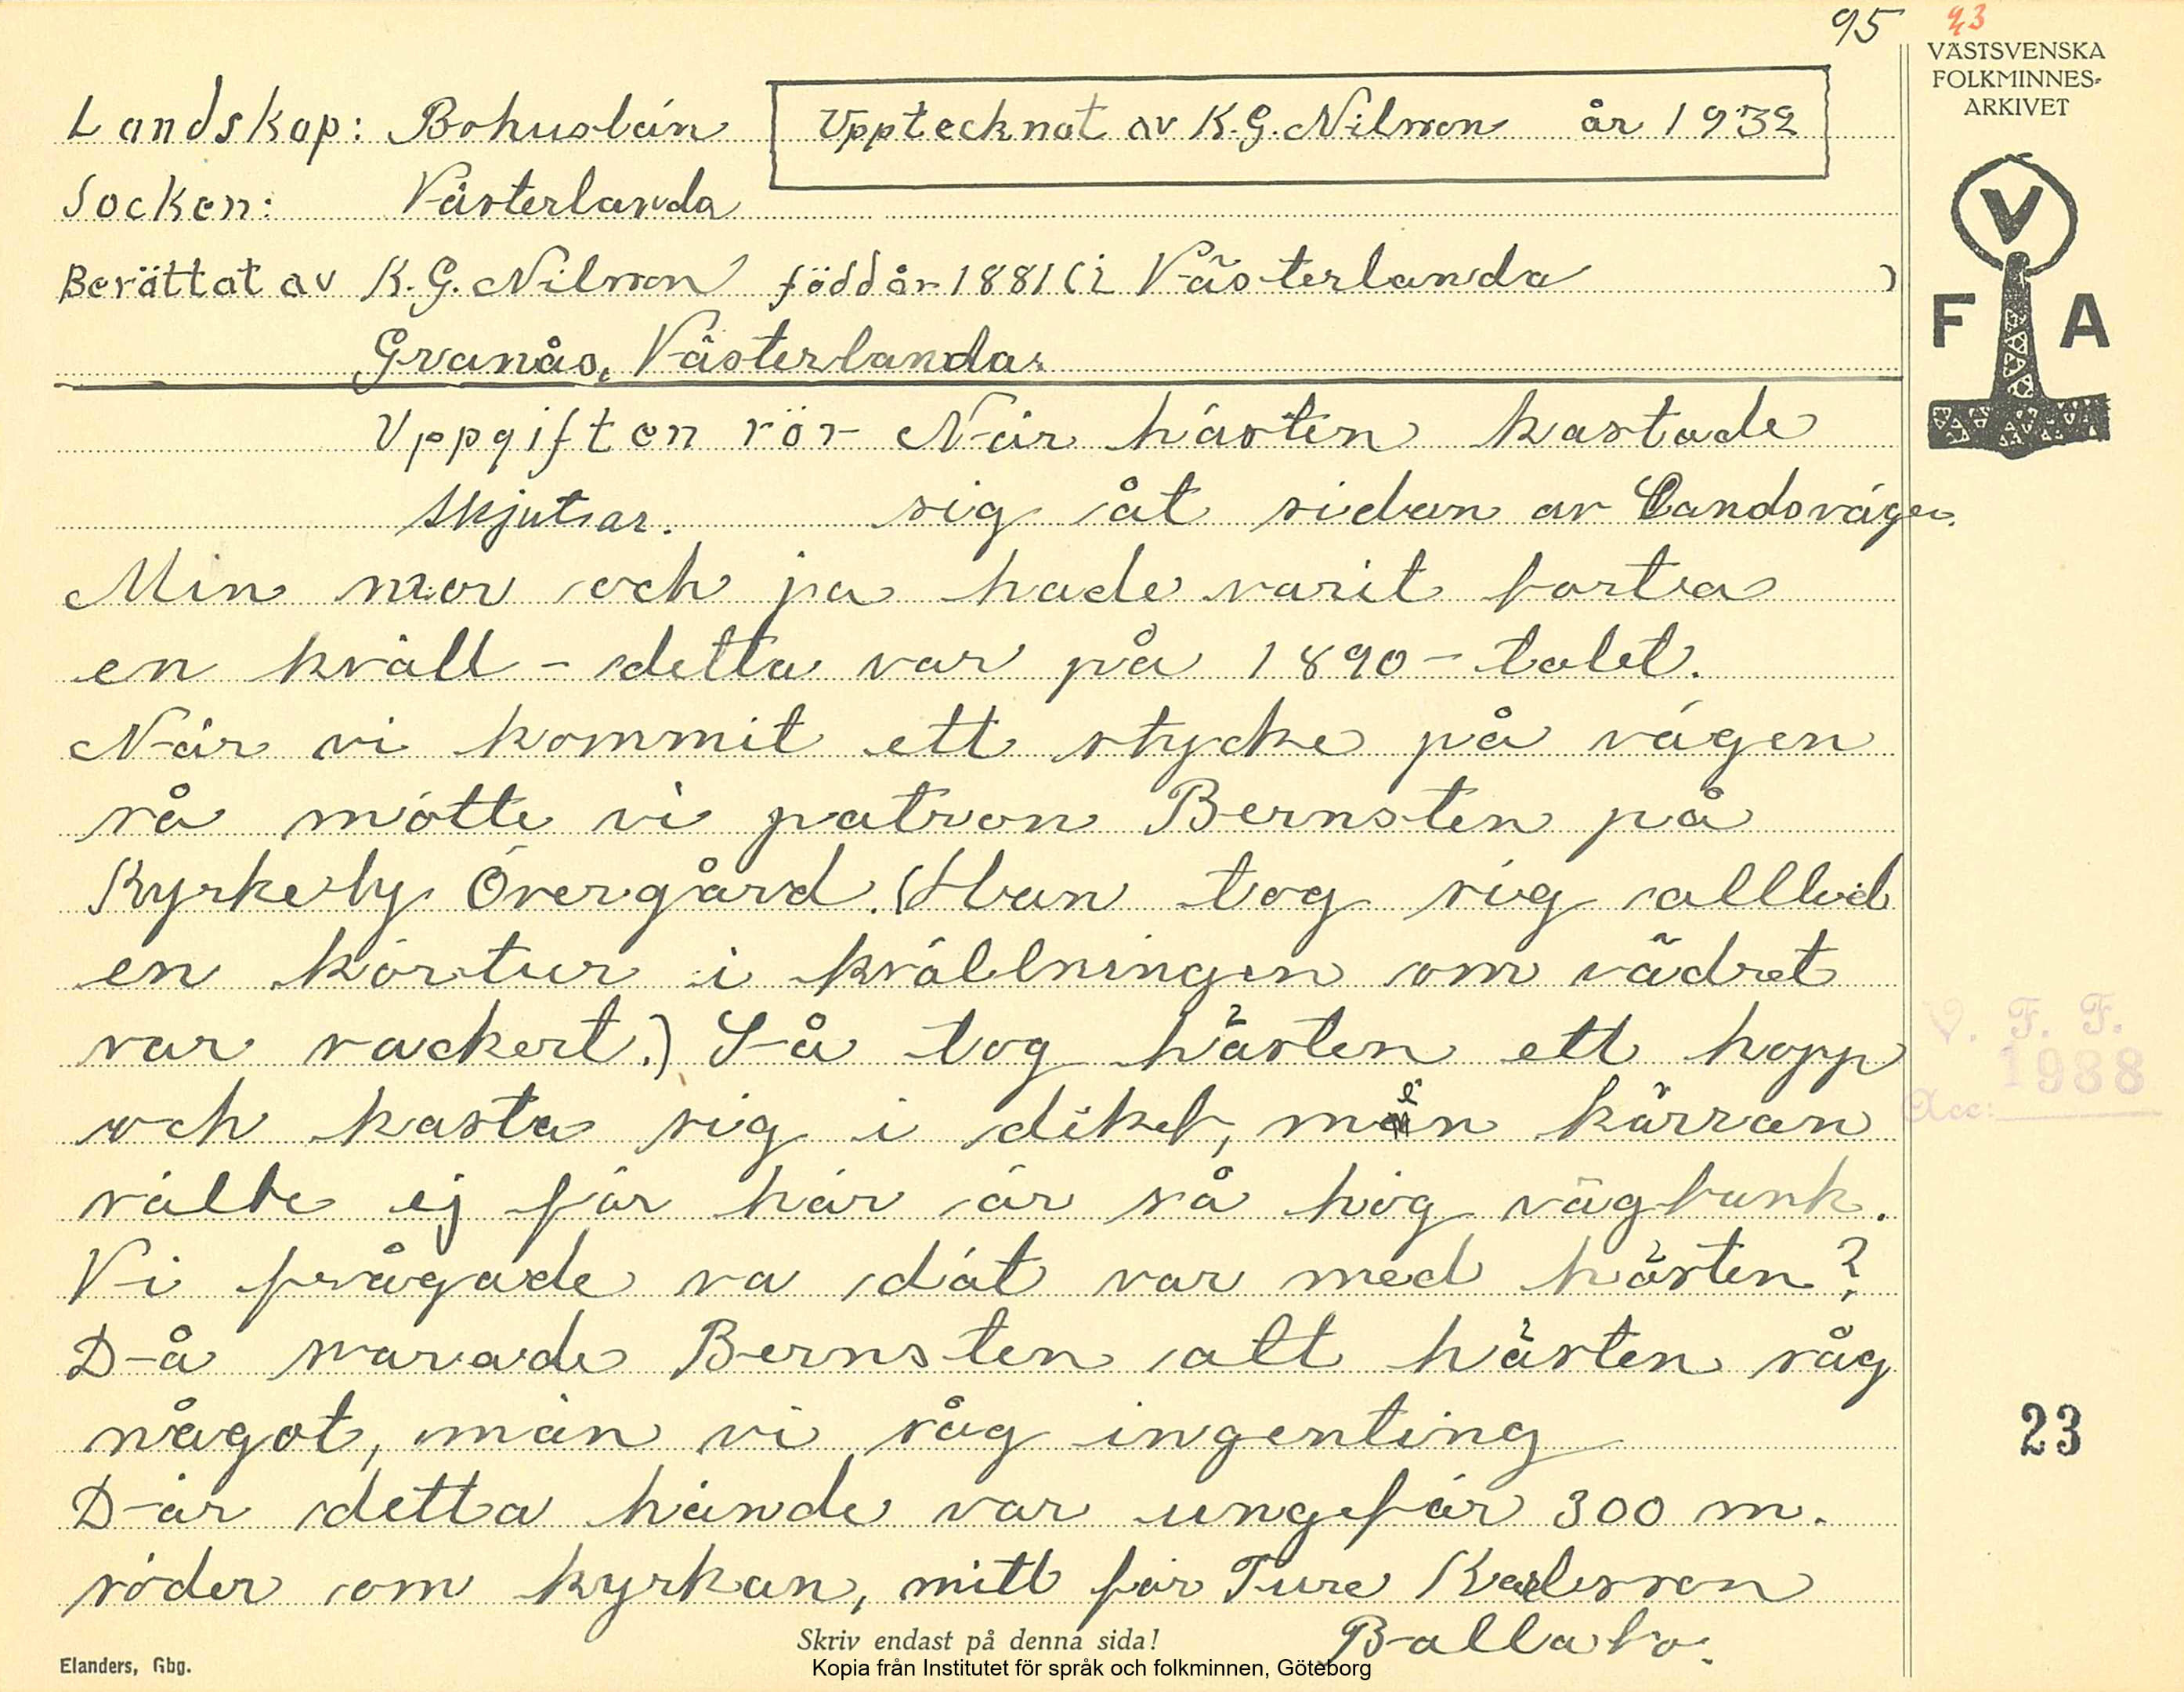 95 23
VÄSTSVENSKA
FOLKMINNES-
ARKIVET
Landskap: Bohuslän Upptecknat av K. G. Nilsson år 1932
Socken: Västerlanda
Berättat av K. G. Nilsson född år 1881 (i Västerlanda )
Granås, Västerlanda.
V
F A
Uppgiften rör När hästen kastade
Skjutsar. sig åt sidan av Landsvägen.
Min mor och ja hade varit borta
en kväll - detta var på 1890-talet.
När vi kommit ett stycke på vägen
så mötte vi patron Bernsten på
Kyrkeby Övergård. (Han tog sig alltid
en körtur i kvällningen om vädret
var vackert.) Så tog hästen ett hopp
och kasta sig i diket, men kärran
välte ej för här är så hög vägbank.
Vi frågade va dät var med hästen?
Då svarade Bernsten att hästen såg
något, män vi såg ingenting
Där detta hände var ungefär 300 m.
söder om kyrkan, mitt för Ture Karlsson
Ballabo.
V. F. F.
1938
Acc:
23
Skriv endast på denna sida!
Elanders, Gbg.
Kopia från Institutet för språk och folkminnen, Göteborg